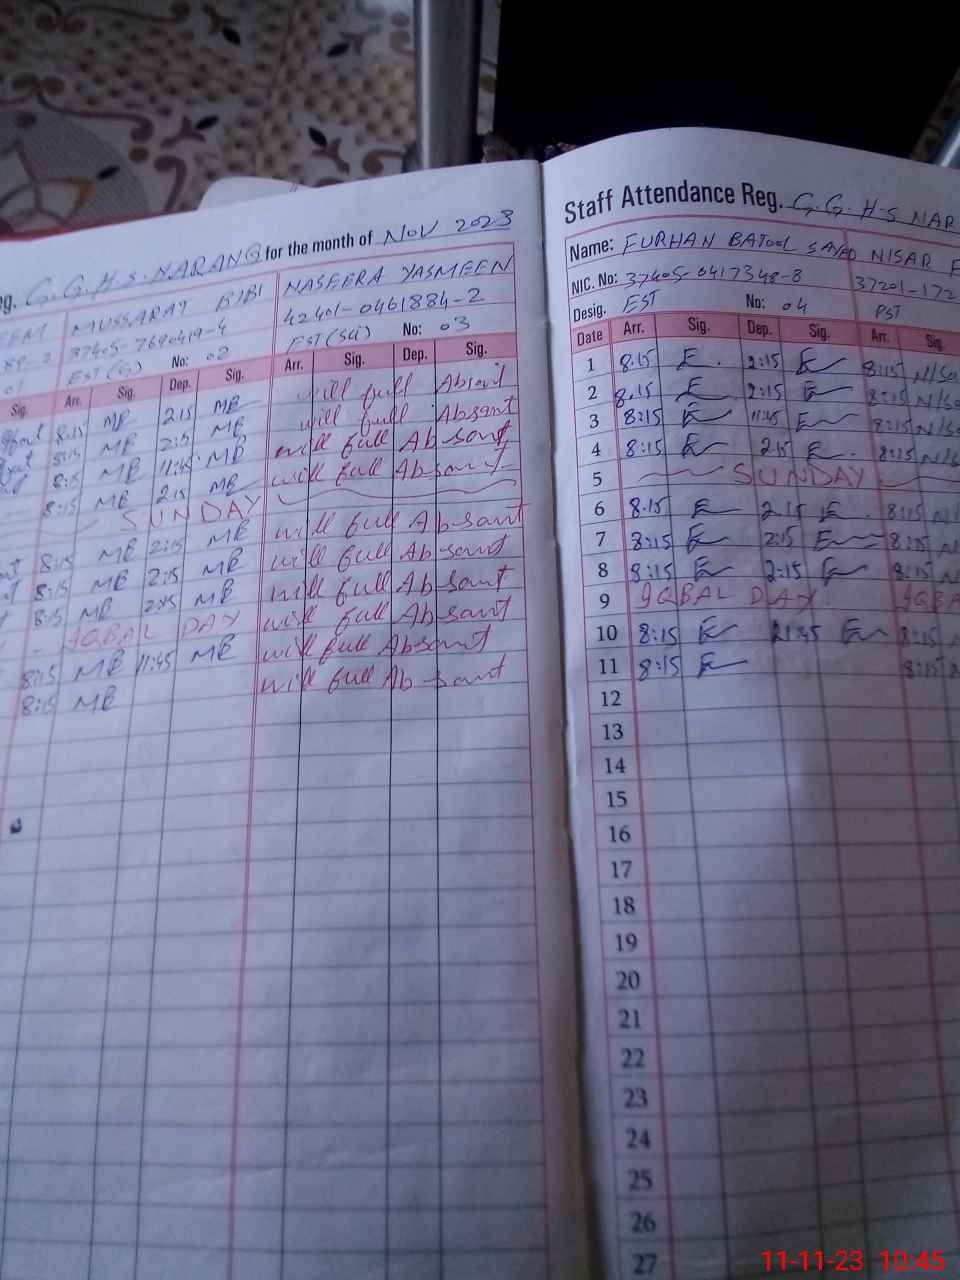 eg. G.G.H.S. NARANG for the month of NOV 2023
EEM MUSSARAT BIBI NASEERA YASMEEN
37405-7690419-4 42401-0461884-2
01 EST No: 02 EST (Sci) No: 03
Sig. Arr. Sig. Dep. Sig. Arr. Sig. Dep. Sig.
8:15 MB 2:15 MB will full Absant
8:15 MB 2:15 MB will full Absant
8:15 MB 11:45 MB will full Absant
8:15 MB 2:15 MB will full Absant
SUNDAY
8:15 MB 2:15 MB will full Absant
8:15 MB 2:15 MB will full Absant
8:15 MB 2:15 MB will full Absant
IQBAL DAY will full Absant
8:15 MB 11:45 MB will full Absant
8:15 MB will full Absant
Staff Attendance Reg. G.G.H.S NAR
Name: FURHAN BATOOL SAYAD NISAR
NIC. No: 37405-0417348-8 37201-172
Desig. EST No: 04 PST
Date Arr. Sig. Dep. Sig. Arr. Sig.
1 8:15 2:15 8:15
2 8:15 2:15 8:15
3 8:15 11:45 8:15
4 8:15 2:15 8:15
5 SUNDAY
6 8:15 2:15 8:15
7 8:15 2:15 8:15
8 8:15 2:15 8:15
9 IQBAL DAY IQBA
10 8:15 8:15
11 8:15 8:15
12
13
14
15
16
17
18
19
20
21
22
23
24
25
26
27
11-11-23 10:45